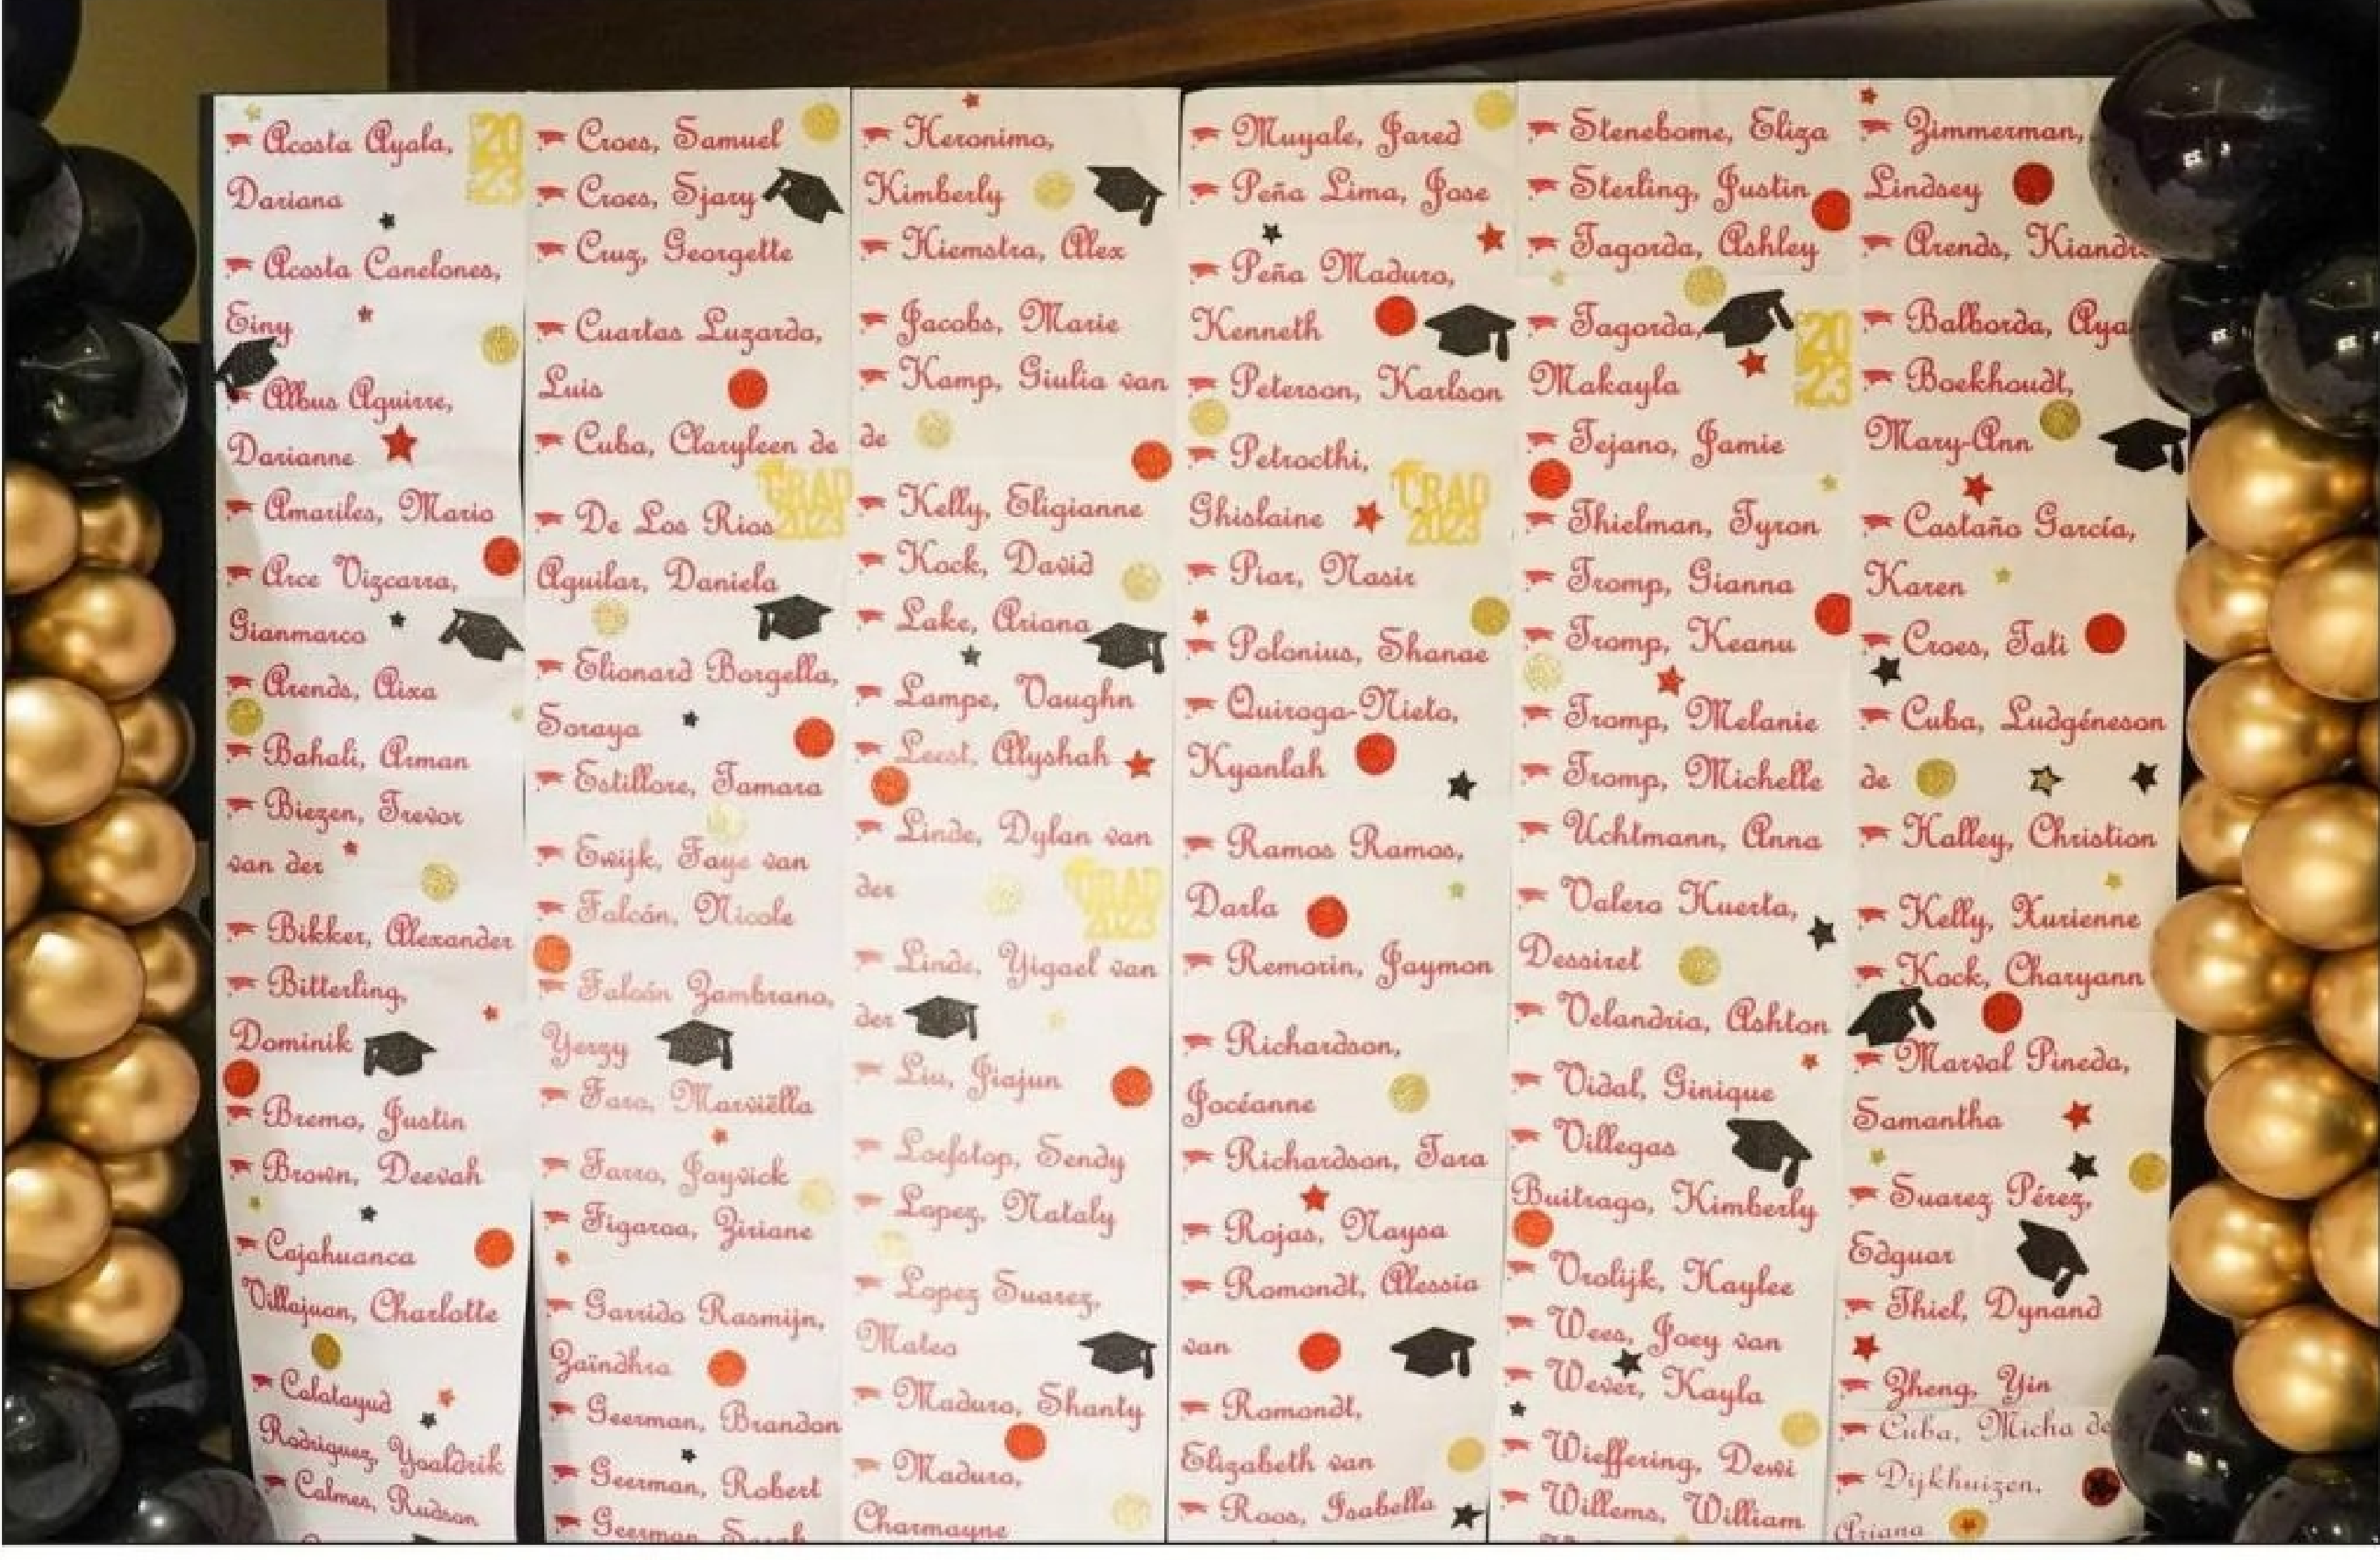 Acosta Ayala,
Dariana
Acosta Canelones,
Einy
Albus Aguirre,
Darianne
Amariles, Mario
Arce Vizcarra,
Gianmarco
Arends, Aixa
Bahali, Arman
Biezen, Trevor
van der
Bikker, Alexander
Bitterling,
Dominik
Bremo, Justin
Brown, Deevah
Cajahuanca
Villajuan, Charlotte
Calatayud
Rodriguez, Yoaldrik
Calmes, Rudson
20
23
Croes, Samuel
Croes, Sjary
Cruz, Georgette
Cuartas Luzardo,
Luis
Cuba, Claryleen de
De Los Rios
Aguilar, Daniela
GRAD
2023
Elionard Borgella,
Soraya
Estillore, Tamara
Ewijk, Faye van
Falcón, Nicole
Falcón Zambrano,
Yerzy
Faro, Marviëlla
Farro, Jayvick
Figaroa, Ziriane
Garrido Rasmijn,
Zaïndhra
Geerman, Brandon
Geerman, Robert
Geerman, Sarah
Heronimo,
Kimberly
Hiemstra, Alex
Jacobs, Marie
Kamp, Giulia van
de
Kelly, Eligianne
Kock, David
Lake, Ariana
Lampe, Vaughn
Leest, Alyshah
Linde, Dylan van
der
GRAD
2023
Linde, Yigael van
der
Liu, Jiajun
Loefstop, Sendy
Lopez, Nataly
Lopez Suarez,
Mateo
Maduro, Shanty
Maduro,
Charmayne
Muyale, Jared
Peña Lima, Jose
Peña Maduro,
Kenneth
Peterson, Karlson
Petrocthi,
Ghislaine
GRAD
2023
Piar, Nasir
Polonius, Shanae
Quiroga-Nieto,
Kyanlah
Ramos Ramos,
Darla
Remorin, Jaymon
Richardson,
Jocéanne
Richardson, Tara
Rojas, Naysa
Romondt, Alessia
van
Romondt,
Elizabeth van
Roos, Isabella
Stenebome, Eliza
Sterling, Justin
Tagorda, Ashley
Tagorda,
Makayla
20
23
Tejano, Jamie
Thielman, Tyron
Tromp, Gianna
Tromp, Keanu
Tromp, Melanie
Tromp, Michelle
Uchtmann, Anna
Valero Huerta,
Dessiret
Velandria, Ashton
Vidal, Ginique
Villegas
Buitrago, Kimberly
Vrolijk, Haylee
Wees, Joey van
Wever, Kayla
Wieffering, Dewi
Willems, William
Zimmerman,
Lindsey
Arends, Kiandr
Balborda, Aya
Boekhoudt,
Mary-Ann
Castaño García,
Karen
Croes, Tati
Cuba, Ludgéneson
de
Halley, Christion
Kelly, Xurienne
Kock, Charyann
Marval Pineda,
Samantha
Suarez Pérez,
Edguar
Thiel, Dynand
Zheng, Yin
Cuba, Micha de
Dijkhuizen,
Ariana